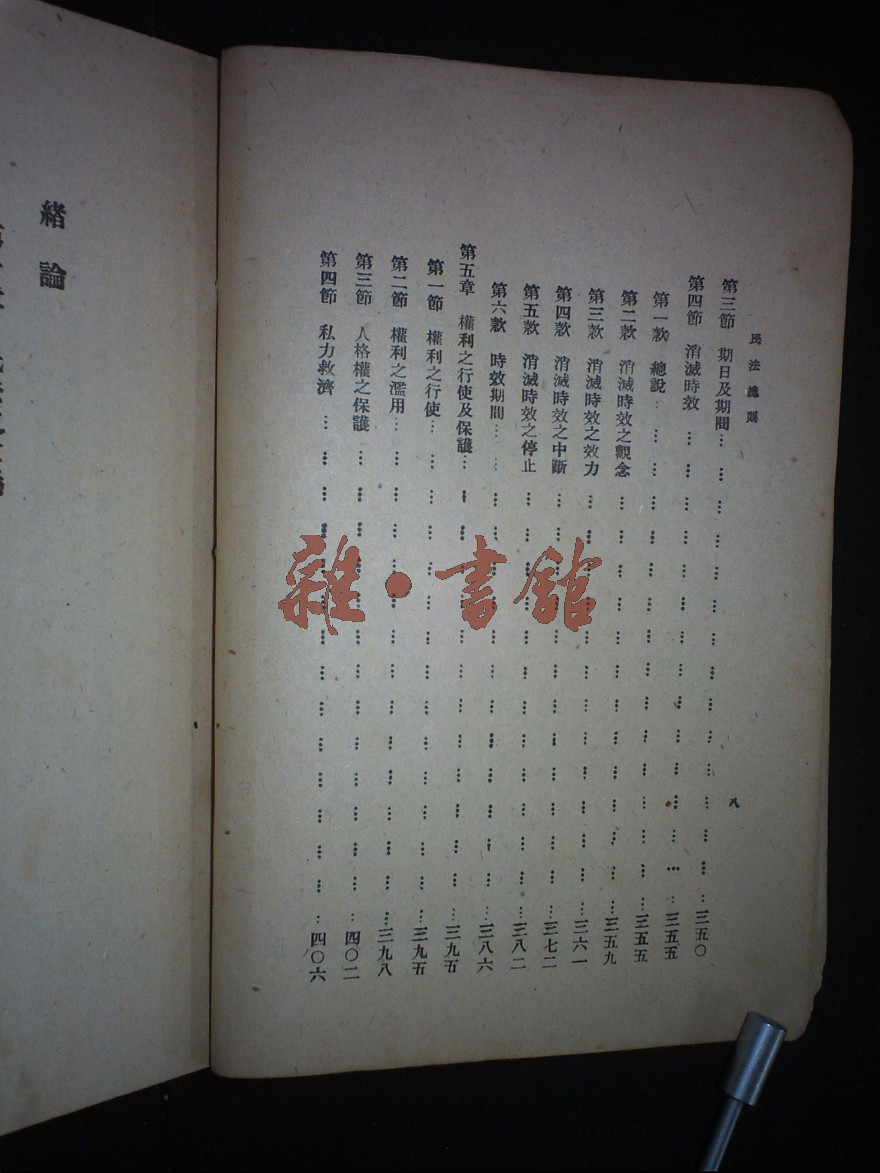 民法總則
八
第三節 期日及期間⋯⋯三五〇
第四節 消滅時效⋯⋯三五五
第一款 總說⋯⋯三五五
第二款 消滅時效之觀念⋯⋯三五九
第三款 消滅時效之效力⋯⋯三六一
第四款 消滅時效之中斷⋯⋯三七二
第五款 消滅時效之停止⋯⋯三八二
第六款 時效期間⋯⋯三八六
第五章 權利之行使及保護⋯⋯三九五
第一節 權利之行使⋯⋯三九五
第二節 權利之濫用⋯⋯三九八
第三節 人格權之保護⋯⋯四〇二
第四節 私力救濟⋯⋯四〇六
緒論
雜·書館